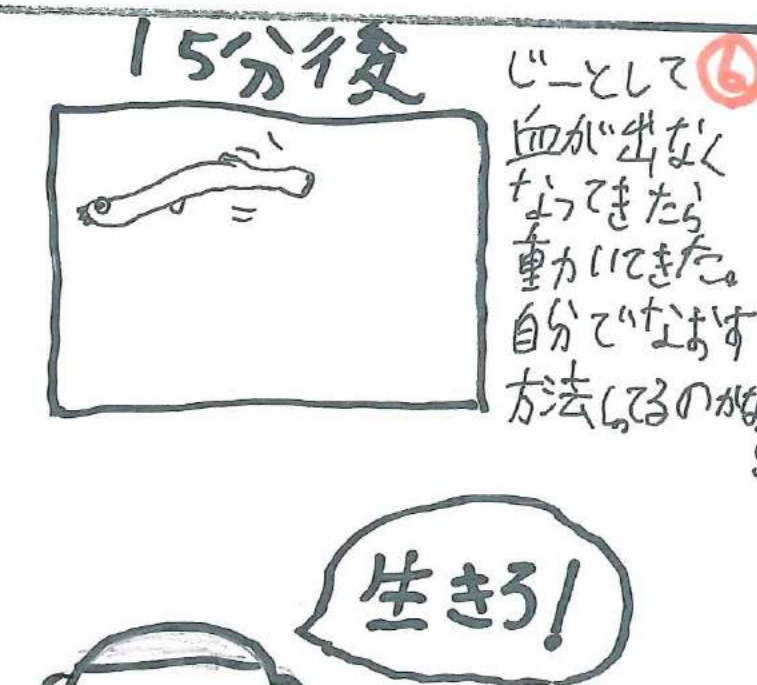 15分後
⑥
じーとして
血が出なく
なってきたら
動いてきた。
自分でなおす
方法しってるのかな
生きろ!